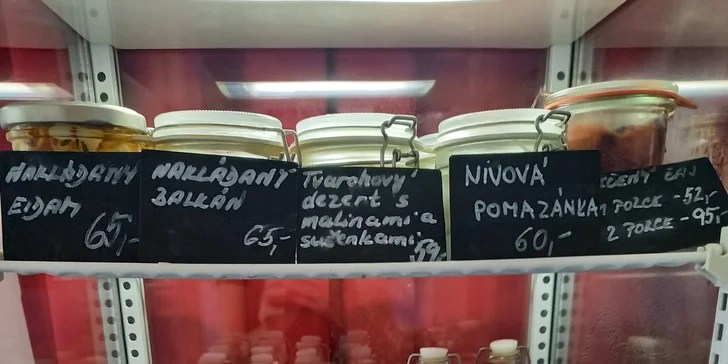 NAKLÁDANÝ
EIDAM
65,-
NAKLÁDANÝ
BALKÁN
65,-
Tvarohový
dezert s
malinami a
sušenkami
59,-
NIVOVÁ
POMAZÁNKA
60,-
ČAJ
1 PORCE -52,-
2 PORCE -95,-